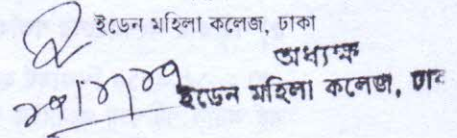 ইডেন মহিলা কলেজ, ঢাকা
অধ্যক্ষ
ইডেন মহিলা কলেজ, ঢাকা